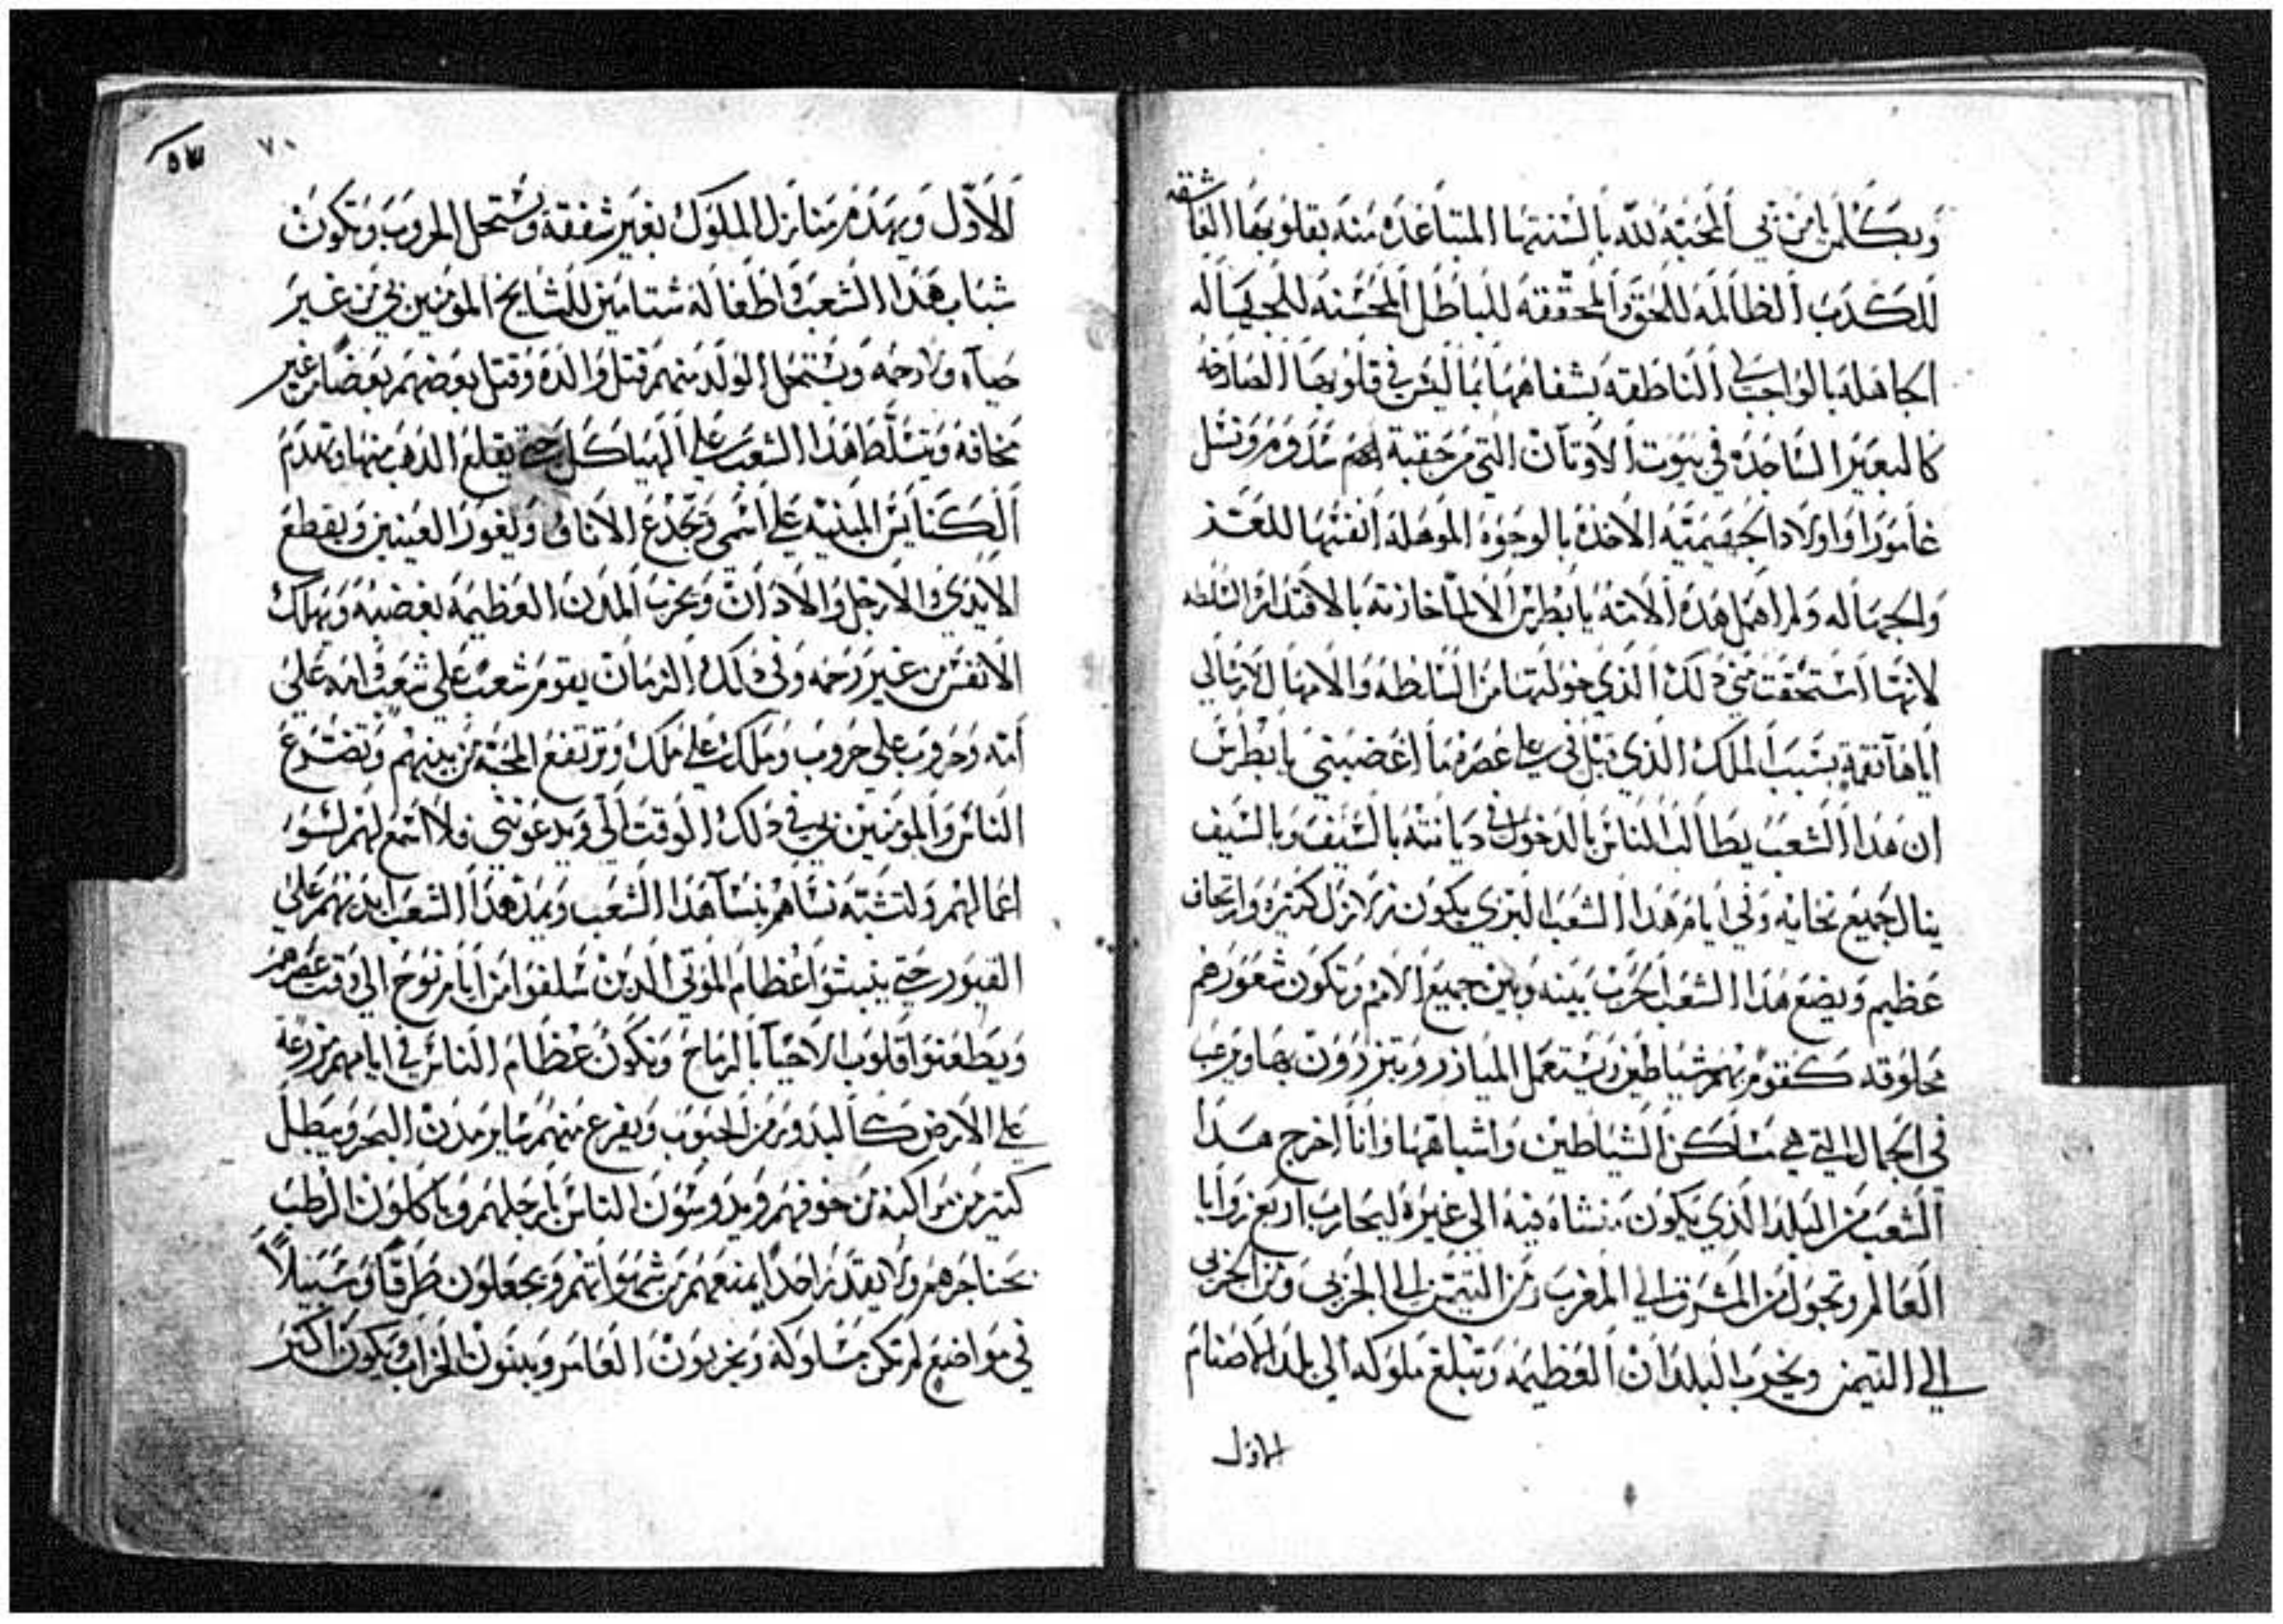 وبكلمن يا من نبي المحبه لله بالسنتها المتباعده منه بقلوبها العاشقه
للكدب الظالمه للحق والمحققه للباطل المحسنه للجهاله
الجاهله بالواجب الناطقه بشفاهها بما ليس في قلوبها الصارخه
كالبعير الساجده في بيوت الاوتان التي من حقبة لهم سدوم ونسل
غامورا واولاد الجقيميه الاخذه بالوجوه الموهله انفسها للعتد
والجهاله ولم اهمل هده الامه يا بطرس الا لماخازته بالاقتدار والسلطه
لانها استحقت مني دلك الذي خولتها من السلطه والامهال لارسالي
اياها نقمة بسبب الملك الذي قبل في علي عصره ما اغضبني يا بطرس
ان هدا الشعب يطالب الناس بالدخول في ديانته بالسيف وبالسيف
ينال جميع نحايته وفي ايام هدا الشعب البري يكون زلازل كتيره وارتجاف
عظيم ويضع هدا الشعب الحرب بينه وبين جميع الامم وتكون شعورهم
محلوقه كقوم بهم شياطين يستعمل الميازر ويتزررون بها ويرغب
في الجمال التي هي مساكن الشياطين واشباهها وانا اخرج هدا
الشعب من البلد الذي يكون منشاه فيه الي غيره ليحارب اربع زوايا
العالم وتجول من المشرق الي المغرب ومن التيمن الي الجربي ومن الجربي
الي التيمن ويخرب البلدان العظيمه وتبلغ ملوكه الي بلد الاصنام
الاول
٧٠
٥٣
الاول ويهدم منازل الملوك بغير شفقه ويستحل الحروب وتكون
شباب هدا الشعب واطفاله شتامين للمشايخ المومنين بي من غير
حياء ولا رحمه ويستحل الولد منهم قتل والده وقتل بعضهم بعضا من غير
مخافه ويتسلط هدا الشعب علي الهياكل حتي يقلع الدهب منها وتهدم
الكنايس المبنيه علي اسمي وتجدع الاناف وتغور العينين ويقطع
الايدي والارجل والادان وتخرب المدن العظيمه بغضبه ويهلك
الانفس من غير رحمه وفي دلك الزمان يقوم شعب علي شعب وامه علي
امه وحروب علي حروب وملك علي ملك وترتفع المحبة من بينهم وتضرع
الناس والمومنين بي في دلك الوقت الي ويدعونني فلا اسمع لهم لسو
اعمالهم ولتشبه نساهم بنسا هدا الشعب ويمد هدا الشعب ايديهم علي
القبور حتي ينبشوا عظام الموتي الدين سلفوا من ايام نوح الي وقت عصرهم
ويطعنوا قلوب الاحيا بالرماح وتكون عظام الناس في ايامهم مزرعة
علي الارض كالبدور من الحبوب ويفزع منهم ساير مدن البحر ويبطل
كتير من مراكبه من خوفهم ويدوسون الناس بارجلهم وياكلون الرطب
بحناجرهم ولا يقدر احدا يمنعهم من شهواتهم ويجعلون طرقا وسبيلا
في مواضع لم تكن مسلوكه ويخربون العامر ويبنون الخراب ويكون اكتر